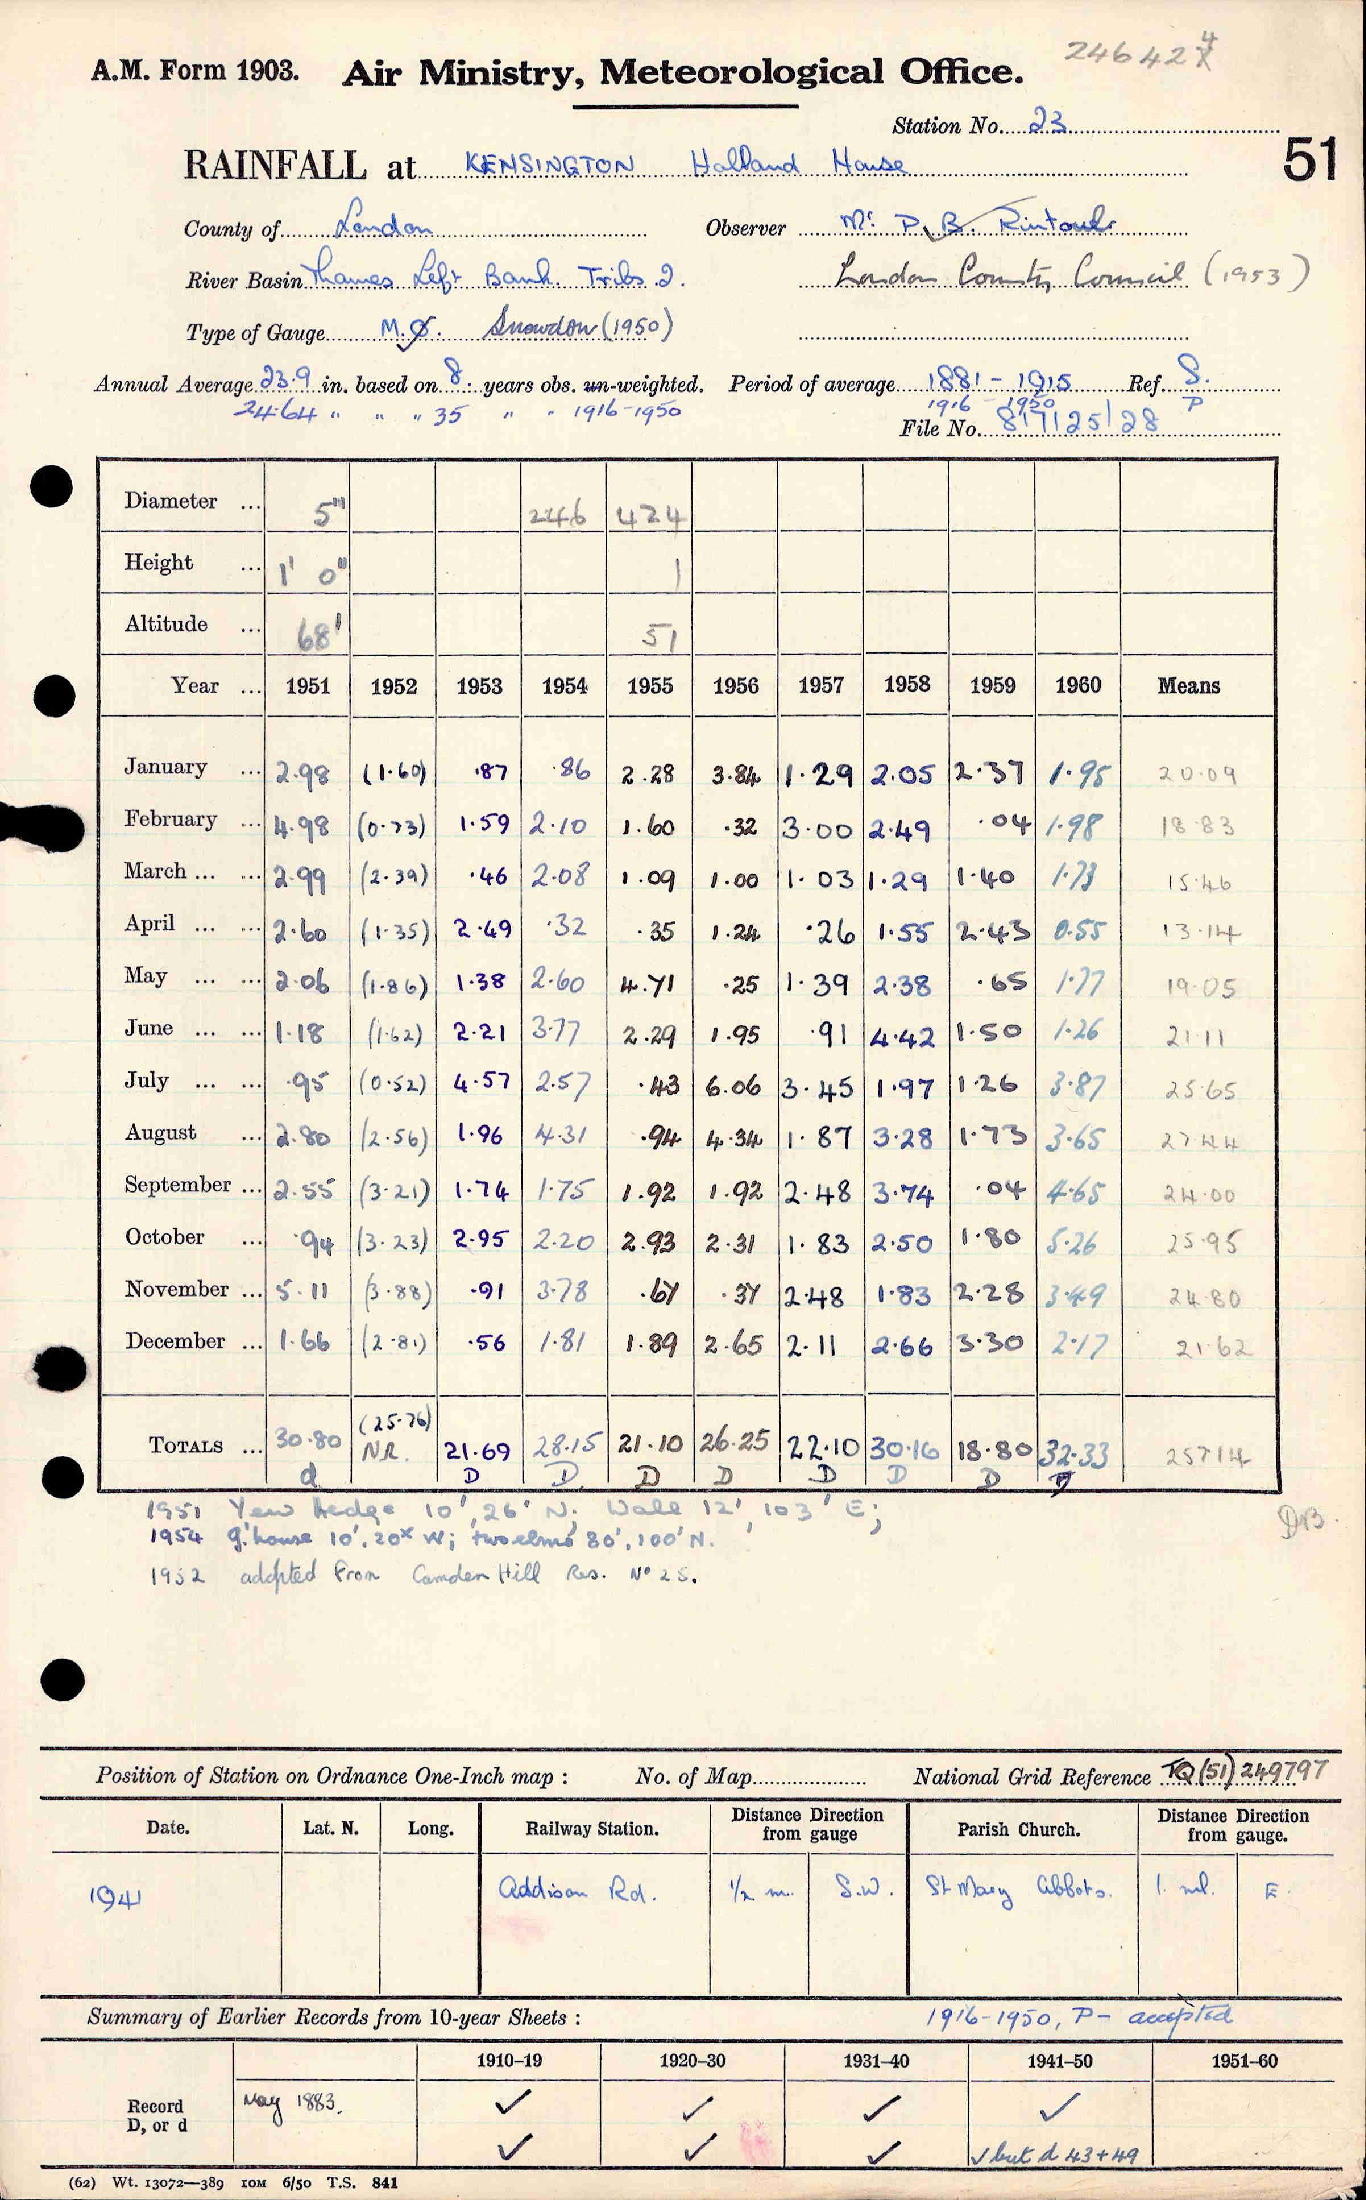 A.M. Form 1903. Air Ministry, Meteorological Office. 246424
Station No. 23
51
RAINFALL at KENSINGTON Holland House
County of London Observer Mr P. B. Rintoul
River Basin Thames Left Bank Tribs 2. London County Council (1953)
Type of Gauge M.O. Snowdon (1950)
Annual Average 23.9 in. based on 8 years obs. un-weighted. Period of average 1881 - 1915 Ref. S.
24.64 " " " 35 " " 1916-1950 1916 - 1950 P
File No. 817125/28
Diameter ... 5" 246 424
Height ... 1' 0" 1
Altitude ... 68' 51
Year ... 1951 1952 1953 1954 1955 1956 1957 1958 1959 1960 Means
January ... 2.98 (1.60) .87 .86 2.28 3.84 1.29 2.05 2.37 1.95 20.09
February ... 4.98 (0.73) 1.59 2.10 1.60 .32 3.00 2.49 .04 1.98 18.83
March ... ... 2.99 (2.39) .46 2.08 1.09 1.00 1.03 1.29 1.40 1.73 15.46
April ... ... 2.60 (1.35) 2.49 .32 .35 1.24 .26 1.55 2.43 0.55 13.14
May ... ... 2.06 (1.86) 1.38 2.60 4.71 .25 1.39 2.38 .65 1.77 19.05
June ... ... 1.18 (1.62) 2.21 3.77 2.29 1.95 .91 4.42 1.50 1.26 21.11
July ... ... .95 (0.52) 4.57 2.57 .43 6.06 3.45 1.97 1.26 3.87 25.65
August ... 2.80 (2.56) 1.96 4.31 .94 4.34 1.87 3.28 1.73 3.65 27.44
September ... 2.55 (3.21) 1.74 1.75 1.92 1.92 2.48 3.74 .04 4.65 24.00
October ... .94 (3.23) 2.95 2.20 2.93 2.31 1.83 2.50 1.80 5.26 25.95
November ... 5.11 (3.88) .91 3.78 .67 .37 2.48 1.83 2.28 3.49 24.80
December ... 1.66 (2.81) .56 1.81 1.89 2.65 2.11 2.66 3.30 2.17 21.62
TOTALS ... 30.80 (25.76) NR. 21.69 28.15 21.10 26.25 22.10 30.16 18.80 32.33 257.14
d D D D D D D D D
1951 Yew hedge 10', 26' N; Wall 12', 103' E;
1954 g'house 10', 20x W; two elms 80', 100' N.
1952 adopted from Camden Hill Res. No 25.
Position of Station on Ordnance One-Inch map : No. of Map National Grid Reference TQ (51) 249797
Date. Lat. N. Long. Railway Station. Distance Direction from gauge Parish Church. Distance Direction from gauge.
1941 Addison Rd. 1/2 m. S.W. St Mary Abbots. 1 ml. E.
Summary of Earlier Records from 10-year Sheets : 1916-1950, P- accepted
1910–19 1920–30 1931–40 1941–50 1951–60
Record D, or d May 1883. ✓ ✓ ✓ ✓
✓ ✓ ✓ ✓ but d 43+49
(62) Wt. 13072—389 10M 6/50 T.S. 841